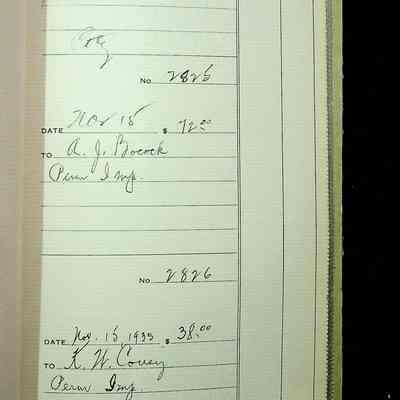 No 2825
DATE Nov 15 $ 72.00
TO A. J. Bocock
Perm Imp.
No 2826
DATE Nov. 15, 1935 $ 38.00
TO K. W. Covey
Perm Imp.